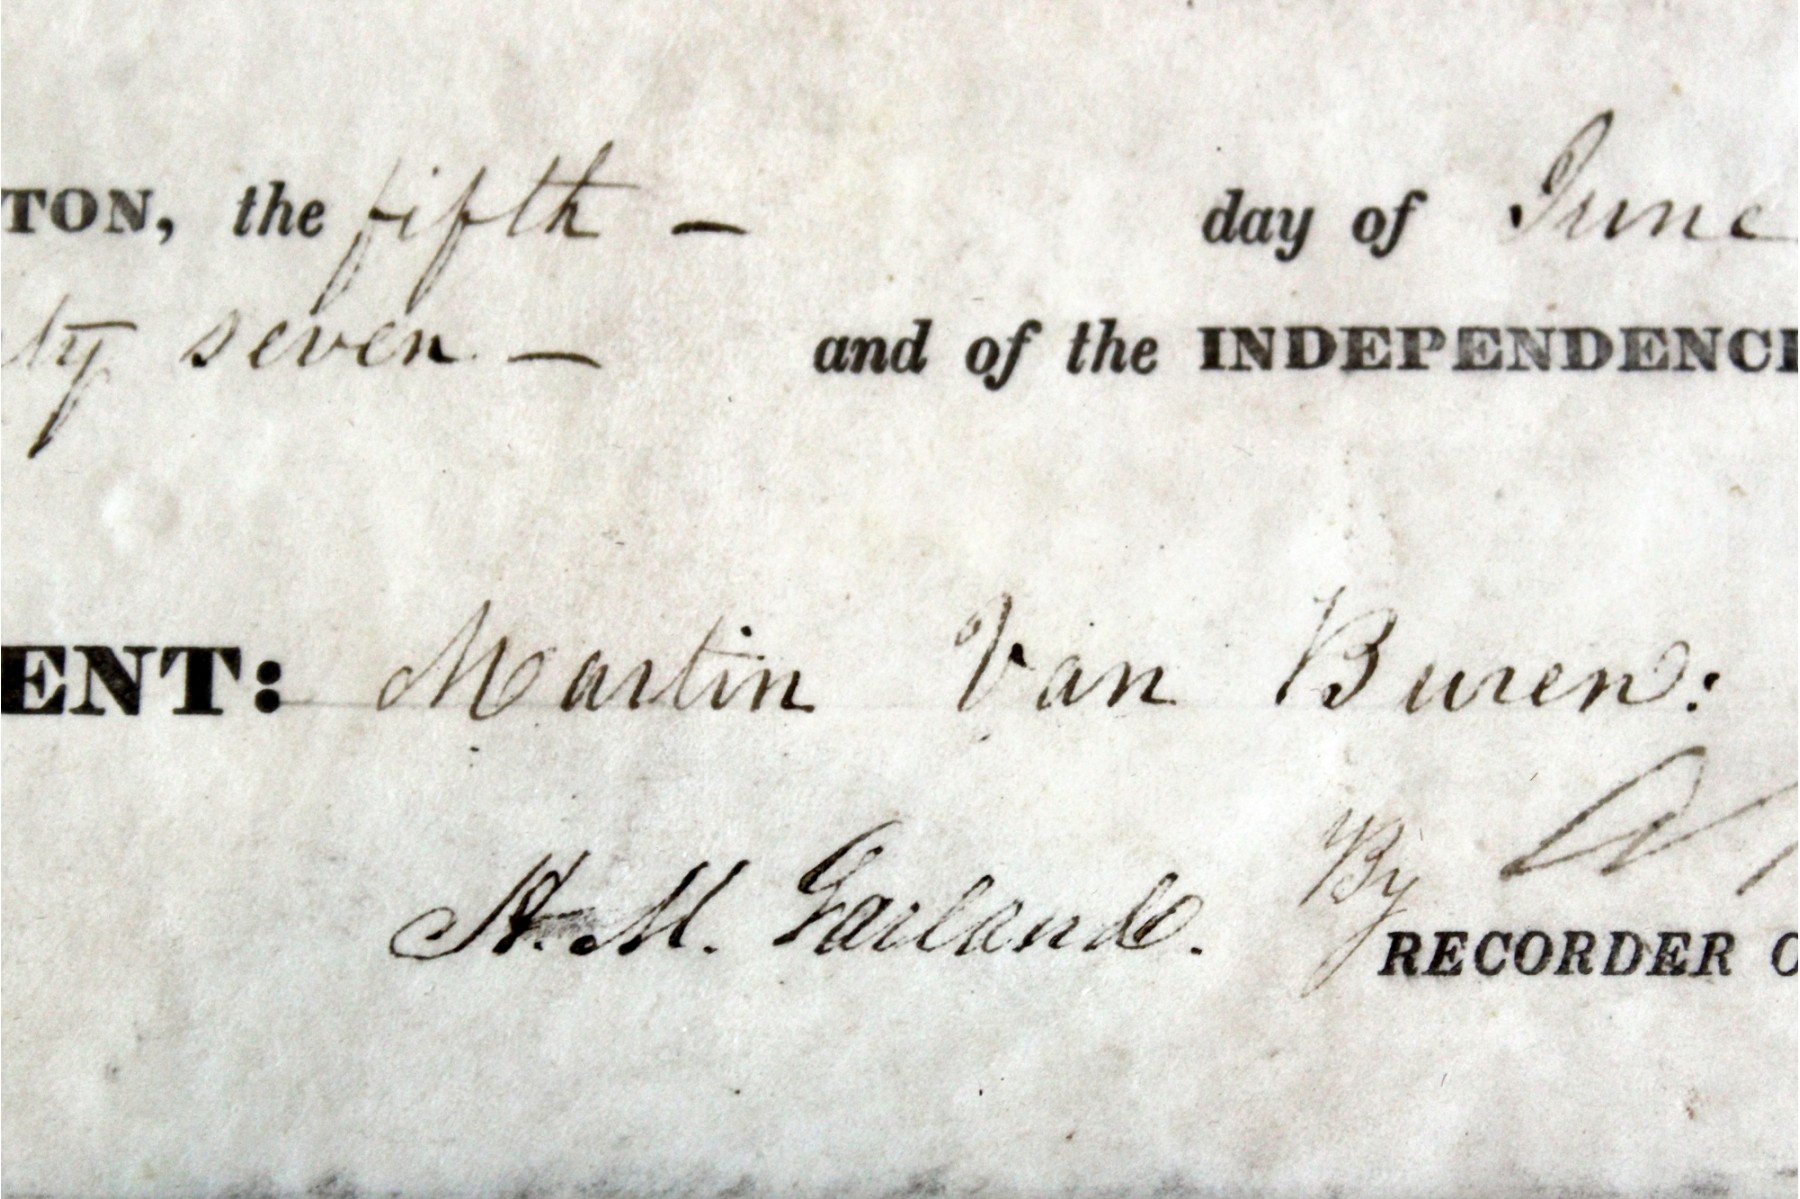 TON, the fifth — day of June
ty seven — and of the INDEPENDENC
ENT: Martin Van Buren:
H. M. Garland. By
RECORDER O